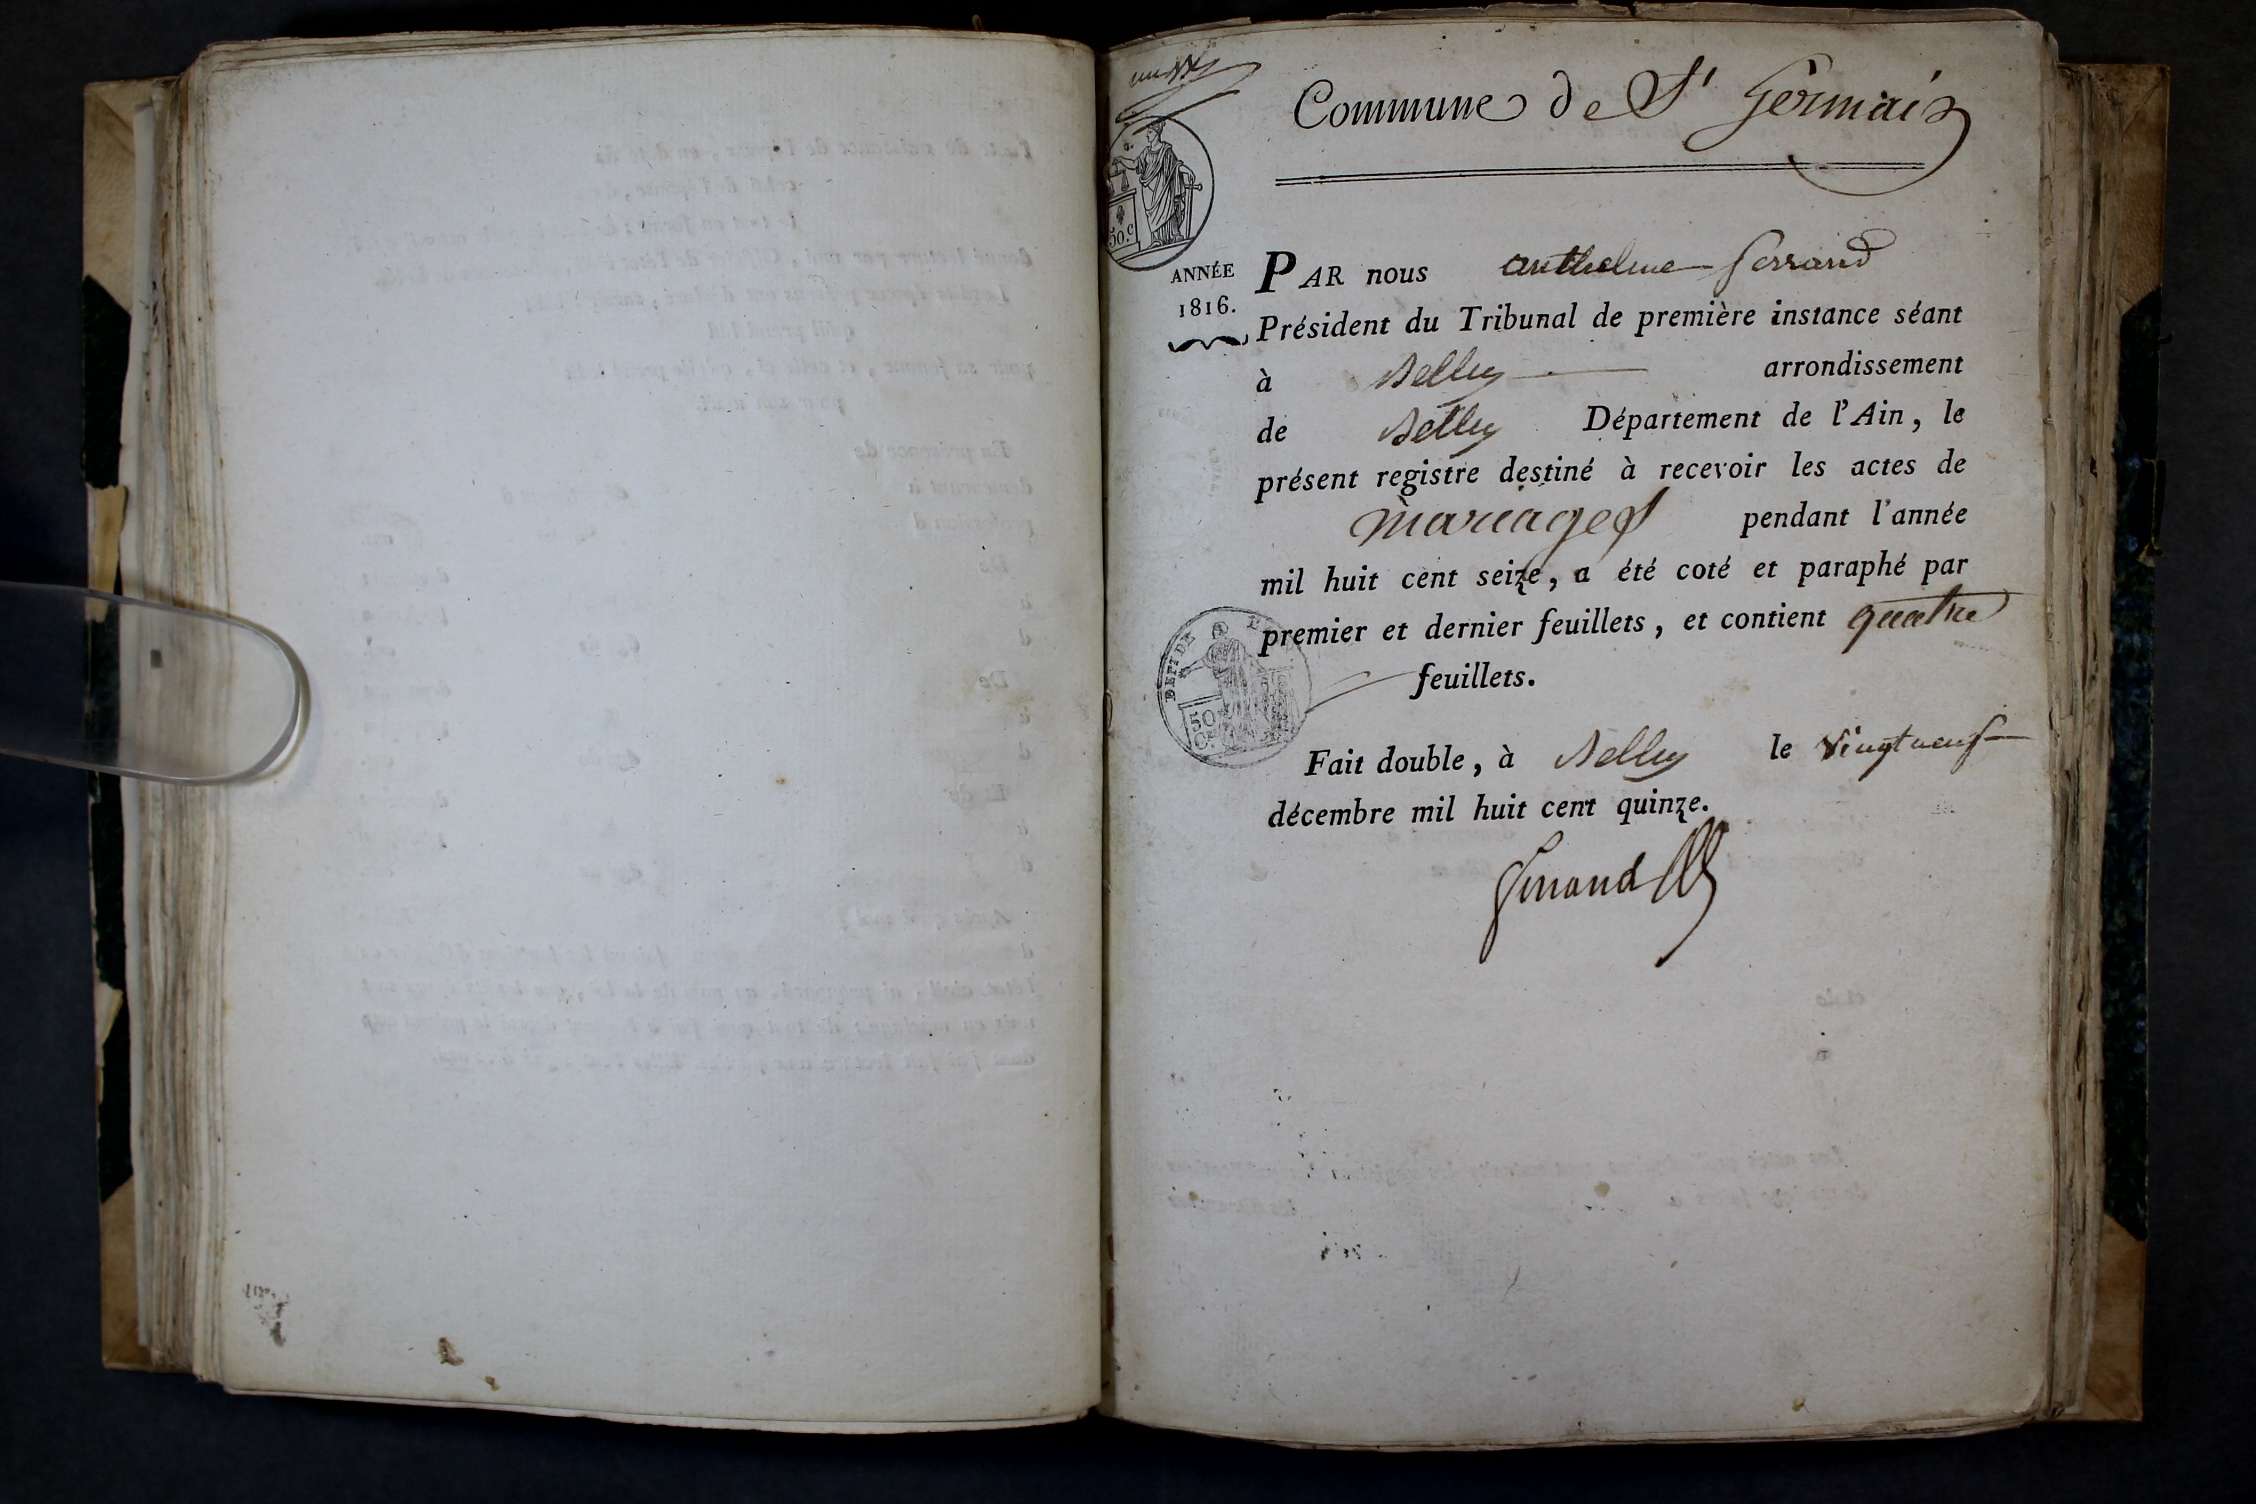 Commune de St Germain
50.c
ANNÉE
1816.
PAR nous anthelme ferrand
Président du Tribunal de première instance séant
à Belley arrondissement
de Belley Département de l'Ain, le
présent registre destiné à recevoir les actes de
mariages pendant l'année
mil huit cent seize, a été coté et paraphé par
premier et dernier feuillets, et contient quatre
feuillets.
50
Fait double, à Belley le vingt neuf
décembre mil huit cent quinze.
ferrand